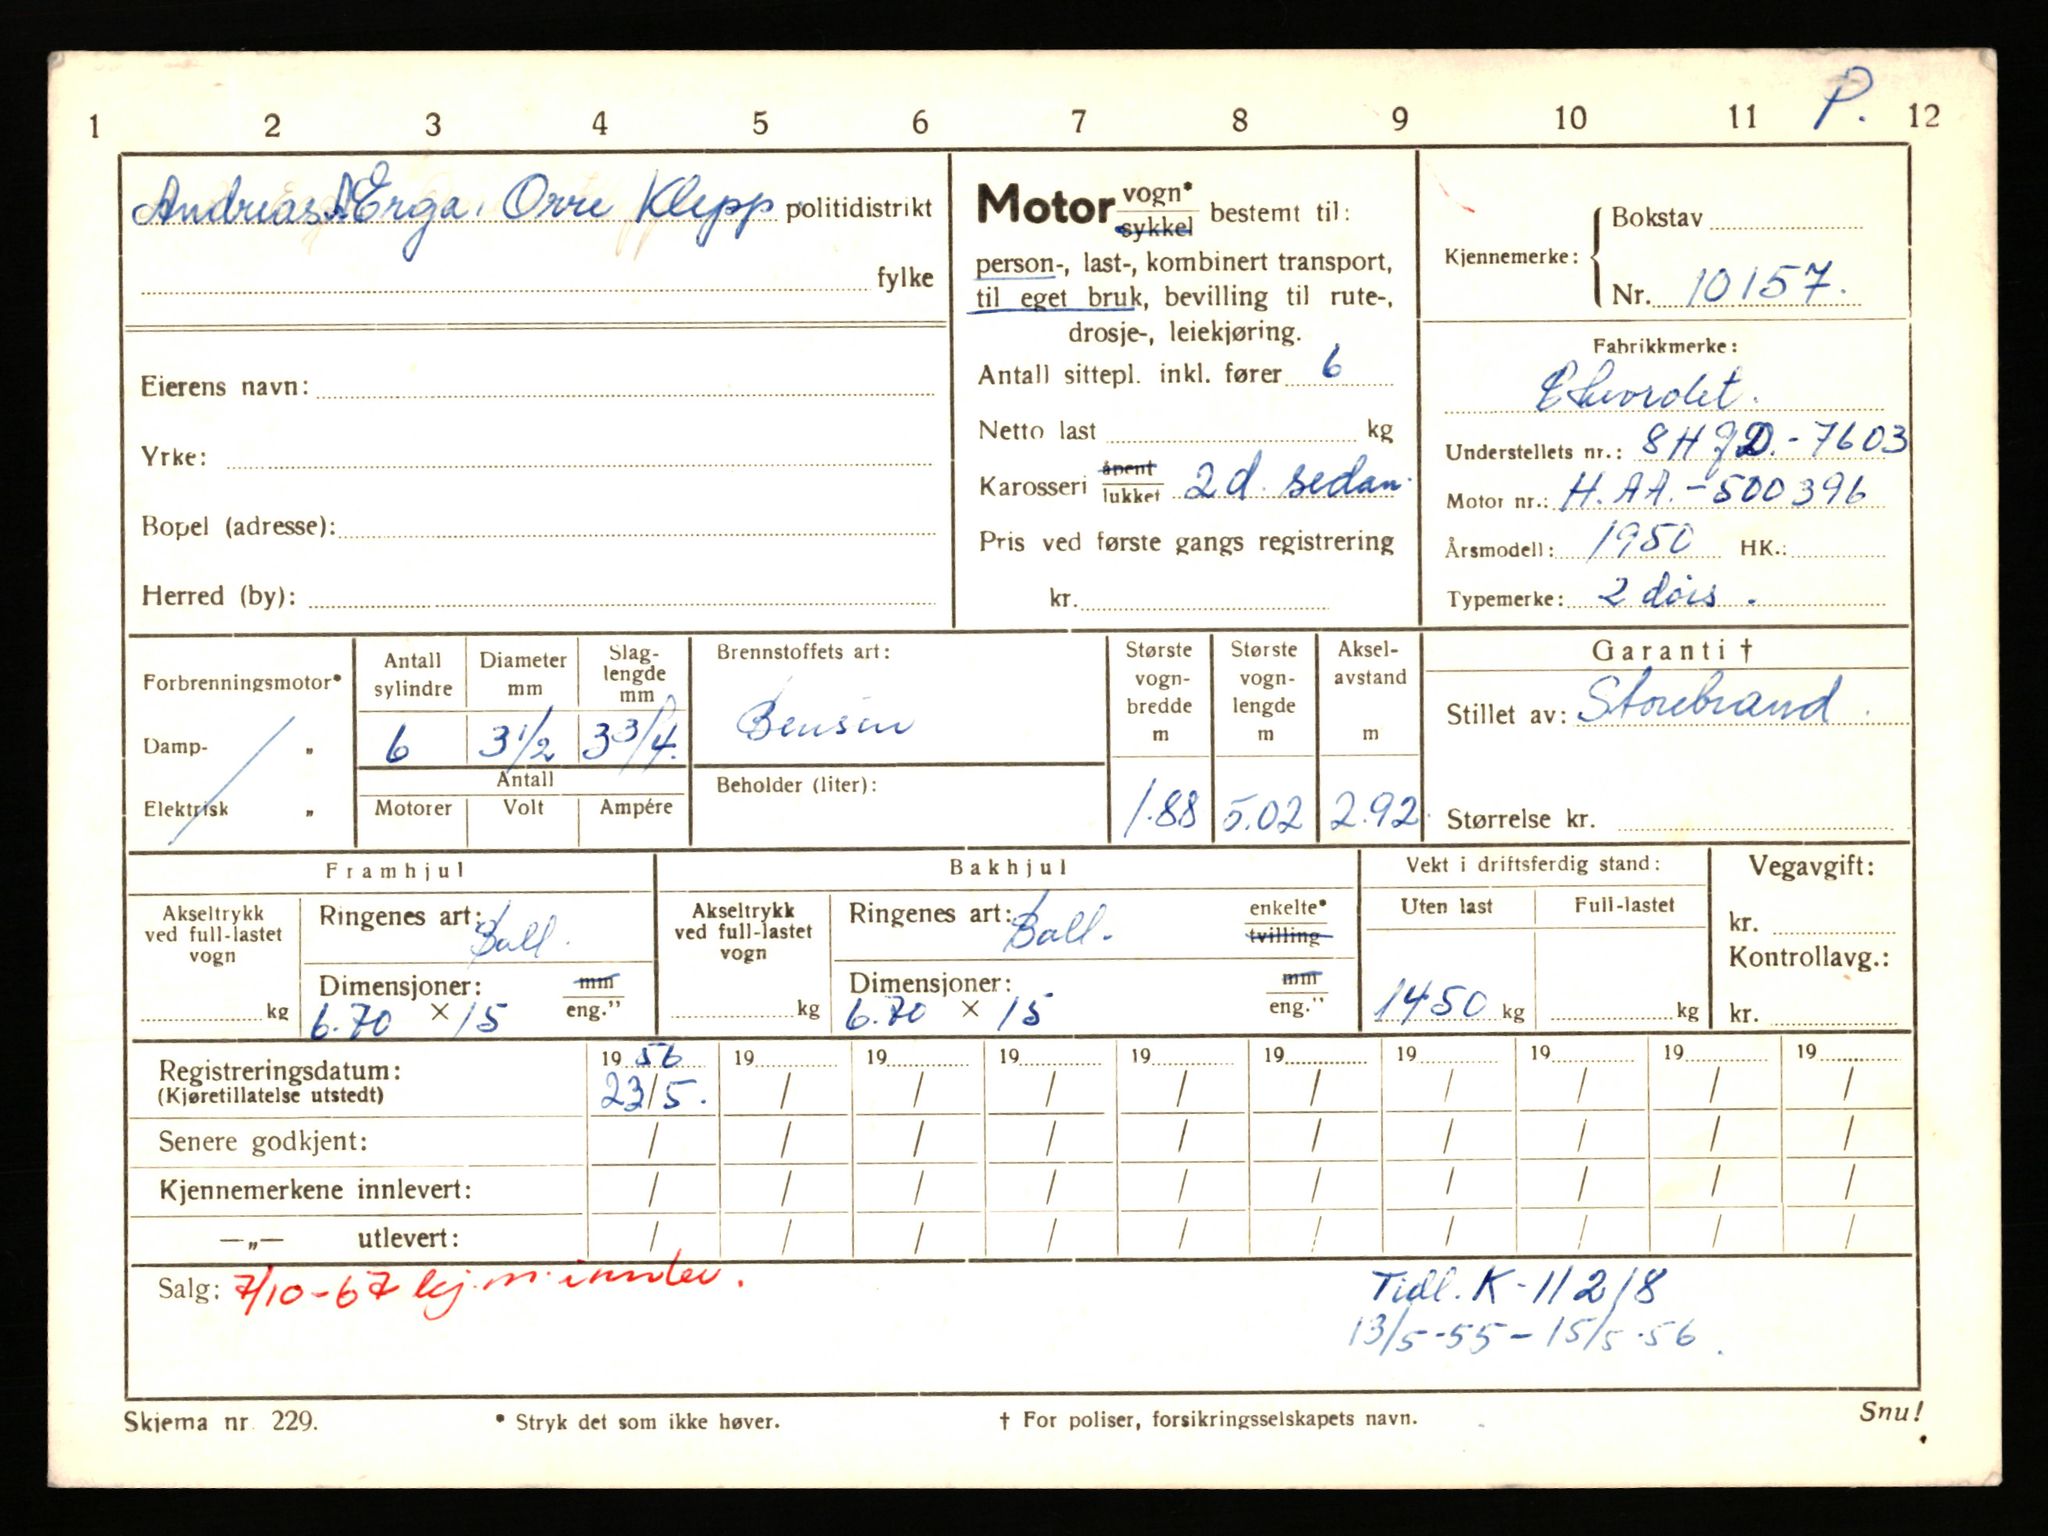 P.
1 2 3 4 5 6 7 8 9 10 11 12
Andreas A Erga, Orre Klepp politidistrikt
fylke
Eierens navn:
Yrke:
Bopel (adresse):
Herred (by):
Motor vogn* sykkel bestemt til:
person-, last-, kombinert transport,
til eget bruk, bevilling til rute-,
drosje-, leiekjøring.
Antall sittepl. inkl. fører 6
Netto last kg
Karosseri åpent lukket 2 d. sedan.
Pris ved første gangs registrering
kr.
Kjennemerke: Bokstav
Nr. 10157.
Fabrikkmerke:
Chevrolet.
Understellets nr.: 8 H J D. - 7603
Motor nr.: H.A A. - 500396
Årsmodell: 1950 HK.:
Typemerke: 2 dørs.
Forbrenningsmotor*
Damp- "
Elektrisk "
Antall sylindre Diameter mm Slaglengde mm
6 3 1/2 3 3/4.
Antall
Motorer Volt Ampére
Brennstoffets art:
Bensin
Beholder (liter):
Største vogn-bredde m
1.88
Største vogn-lengde m
5.02
Aksel-avstand m
2.92
Garanti †
Stillet av: Storebrand.
Størrelse kr.
Framhjul
Akseltrykk ved full-lastet vogn
kg
Ringenes art: Ball.
Dimensjoner: mm eng."
6.70 × 15
Bakhjul
Akseltrykk ved full-lastet vogn
kg
Ringenes art: Ball. enkelte* tvilling
Dimensjoner: mm eng."
6.70 × 15
Vekt i driftsferdig stand:
Uten last Full-lastet
1450 kg kg
Vegavgift:
kr.
Kontrollavg.:
kr.
Registreringsdatum: 19 56 19 19 19 19 19 19 19 19 19
(Kjøretillatelse utstedt) 23/5. / / / / / / / / /
Senere godkjent: / / / / / / / / / /
Kjennemerkene innlevert: / / / / / / / / / /
—„— utlevert: / / / / / / / / / /
Salg: 7/10-67 kj.m. innlev.
Tidl. K-11218
13/5-55 - 15/5-56.
Skjema nr. 229.
* Stryk det som ikke høver.
† For poliser, forsikringsselskapets navn.
Snu!